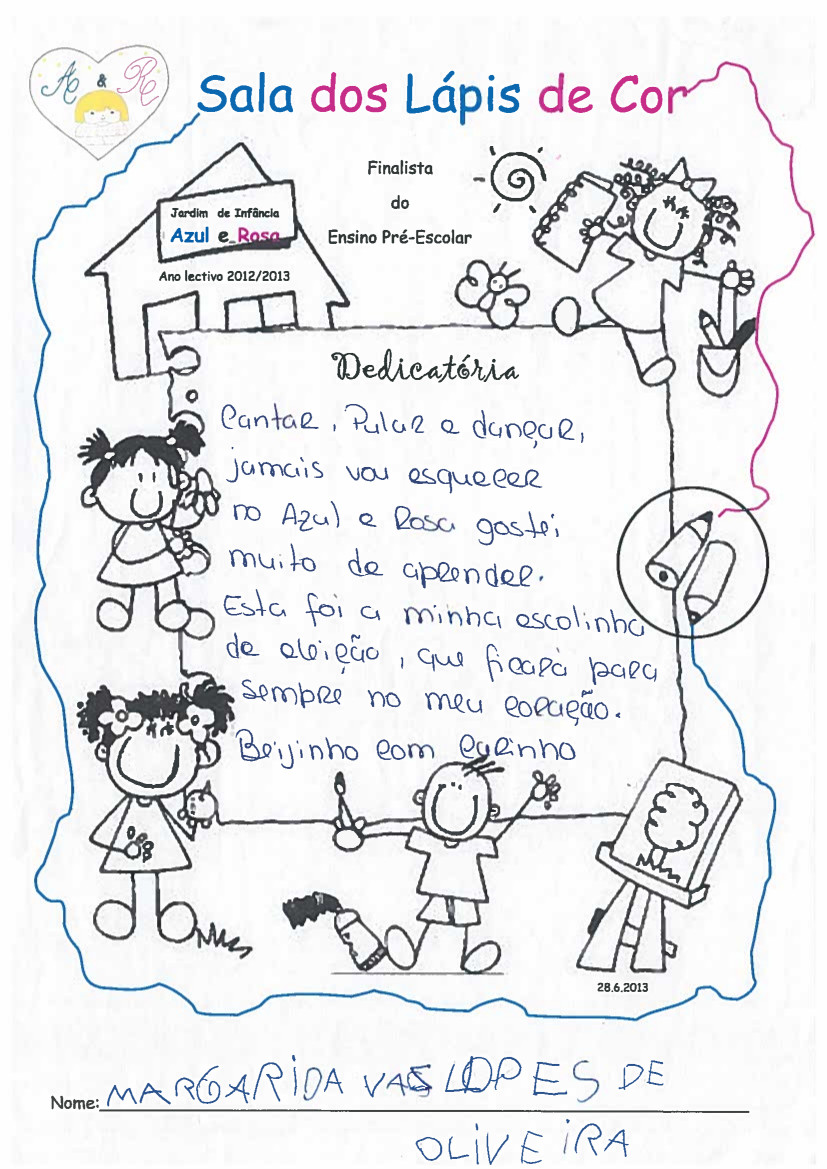 A & R
Sala dos Lápis de Cor
Finalista
do
Ensino Pré-Escolar
Jardim de Infância
Azul e Rosa
Ano lectivo 2012/2013
Dedicatória
Cantar, Pular e dançar,
jamais vou esquecer
no Azul e Rosa gostei
muito de aprender.
Esta foi a minha escolinha
de eleição, que ficará para
sempre no meu coração.
Beijinho com carinho
28.6.2013
Nome: MARGARIDA VAS LOPES DE
OLIVEIRA